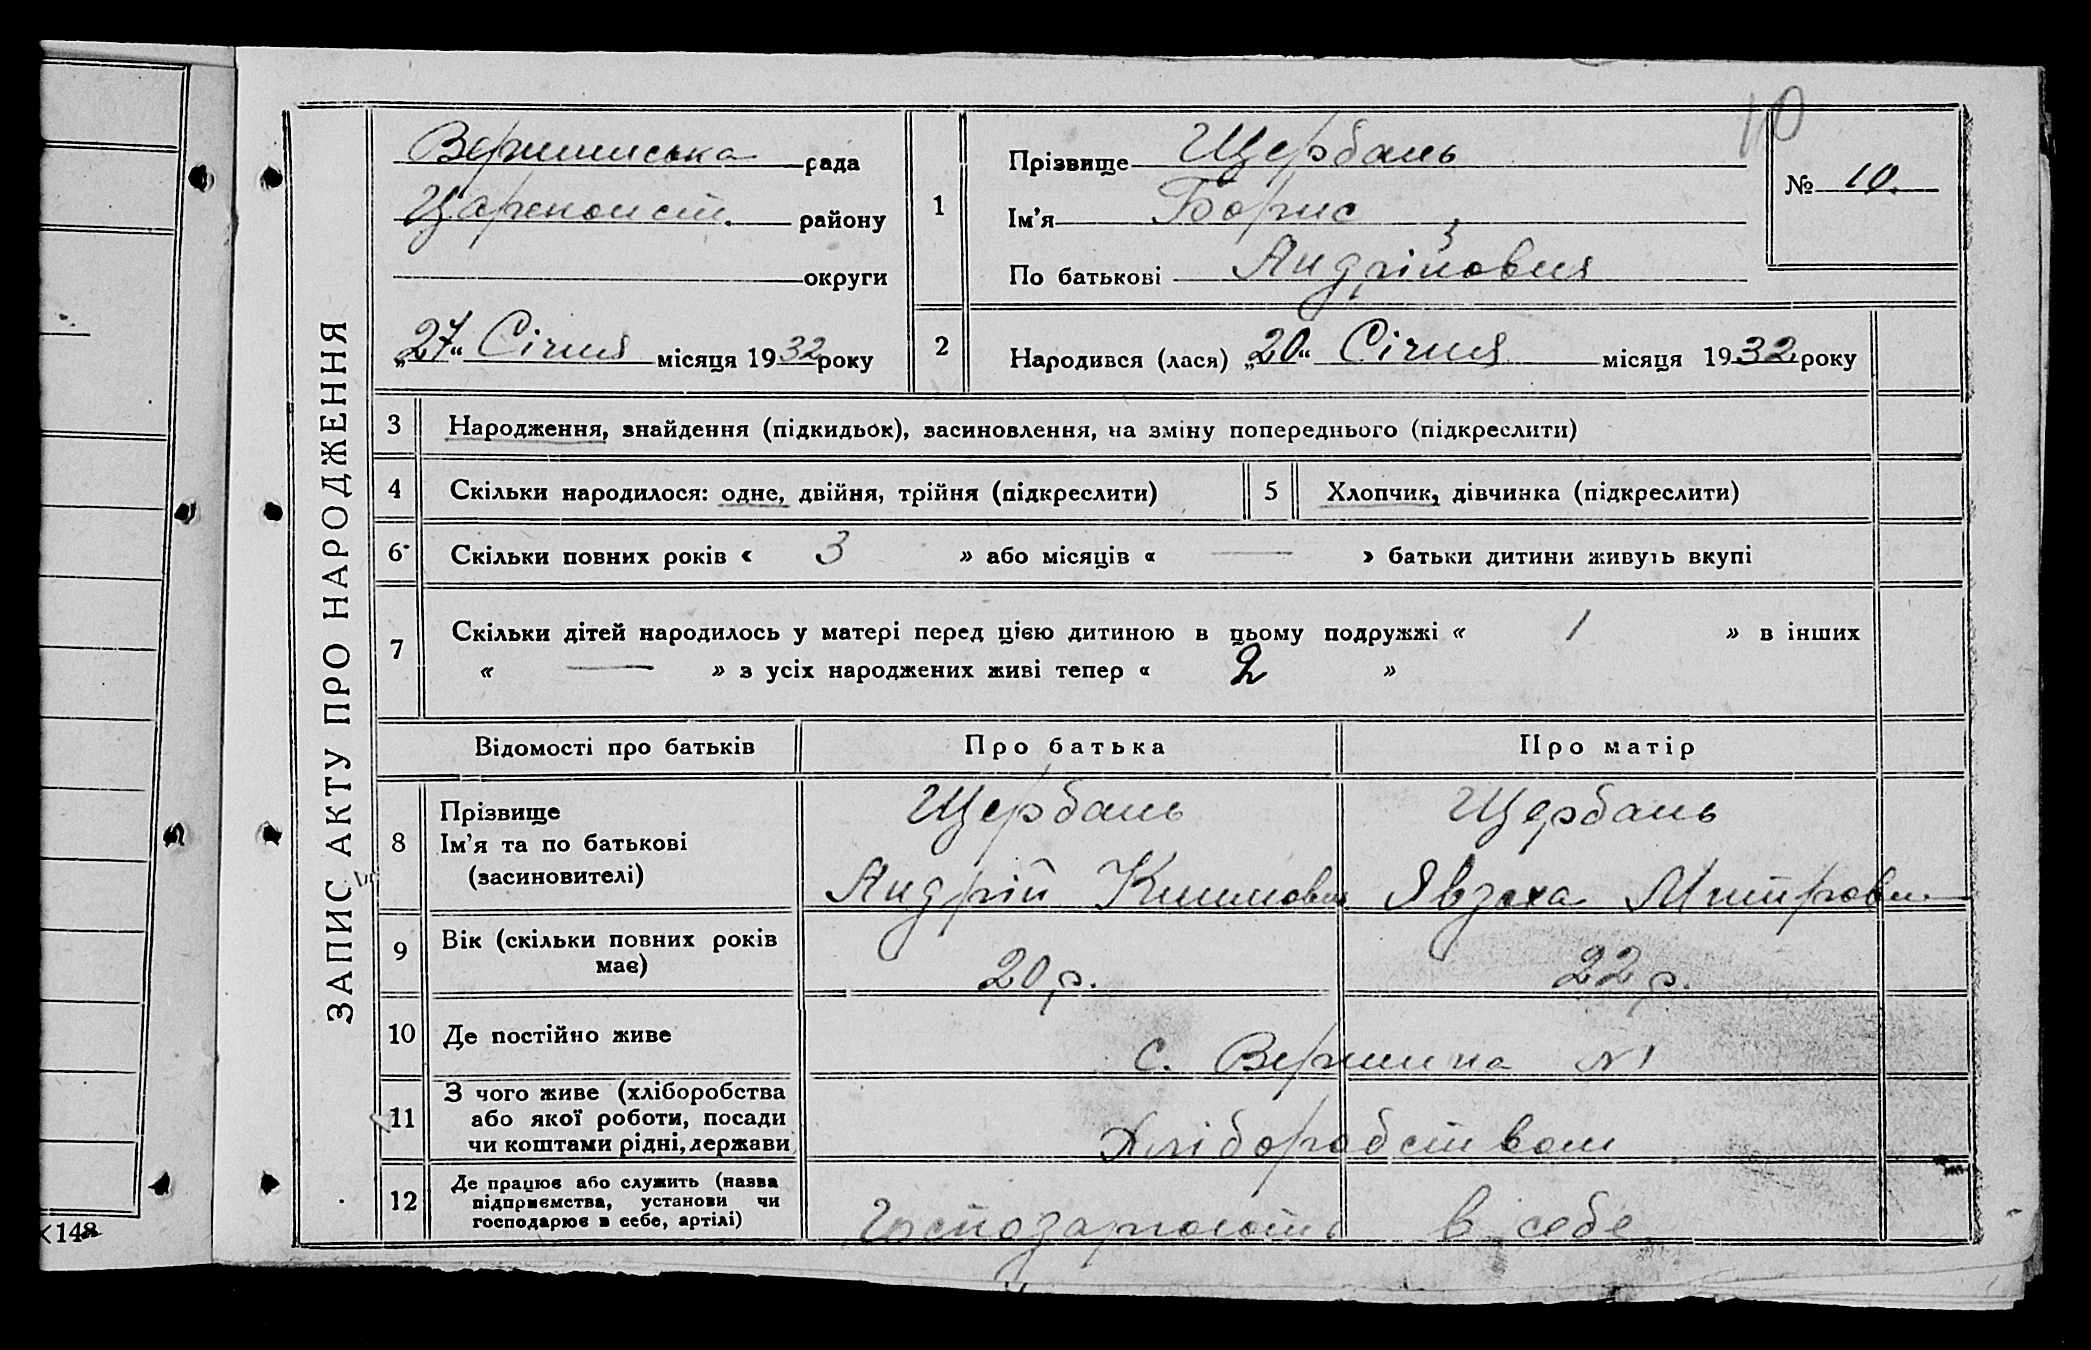 ЗАПИС АКТУ ПРО НАРОДЖЕННЯ
10
Вершинська рада
району
округи
„27“ Січня місяця 1932 року
1
Прізвище Щербань
Ім'я Борис
По батькові Андрійовия
№ 10.
2
Народився (лася) „20“ Січня місяця 1932 року
3 Народження, знайдення (підкидьок), засиновлення, на зміну попереднього (підкреслити)
4 Скільки народилося: одне, двійня, трійня (підкреслити) 5 Хлопчик, дівчинка (підкреслити)
6 Скільки повних років « 3 » або місяців « — » батьки дитини живуть вкупі
7 Скільки дітей народилось у матері перед цією дитиною в цьому подружжі « 1 » в інших
« — » з усіх народжених живі тепер « 2 »
Відомості про батьків Про батька Про матір
8 Прізвище
Ім'я та по батькові
(засиновителі)
Щербань Щербань
Андрій Климович Явдоха Митровн.
9 Вік (скільки повних років
має)
20 р. 22 р.
10 Де постійно живе с. Вершина №1
11 З чого живе (хліборобства
або якої роботи, посади
чи коштами рідні, держави
Хліборобством
12 Де працює або служить (назва
підприємства, установи чи
господарює в себе, артілі)
Господарюють в себе
×148